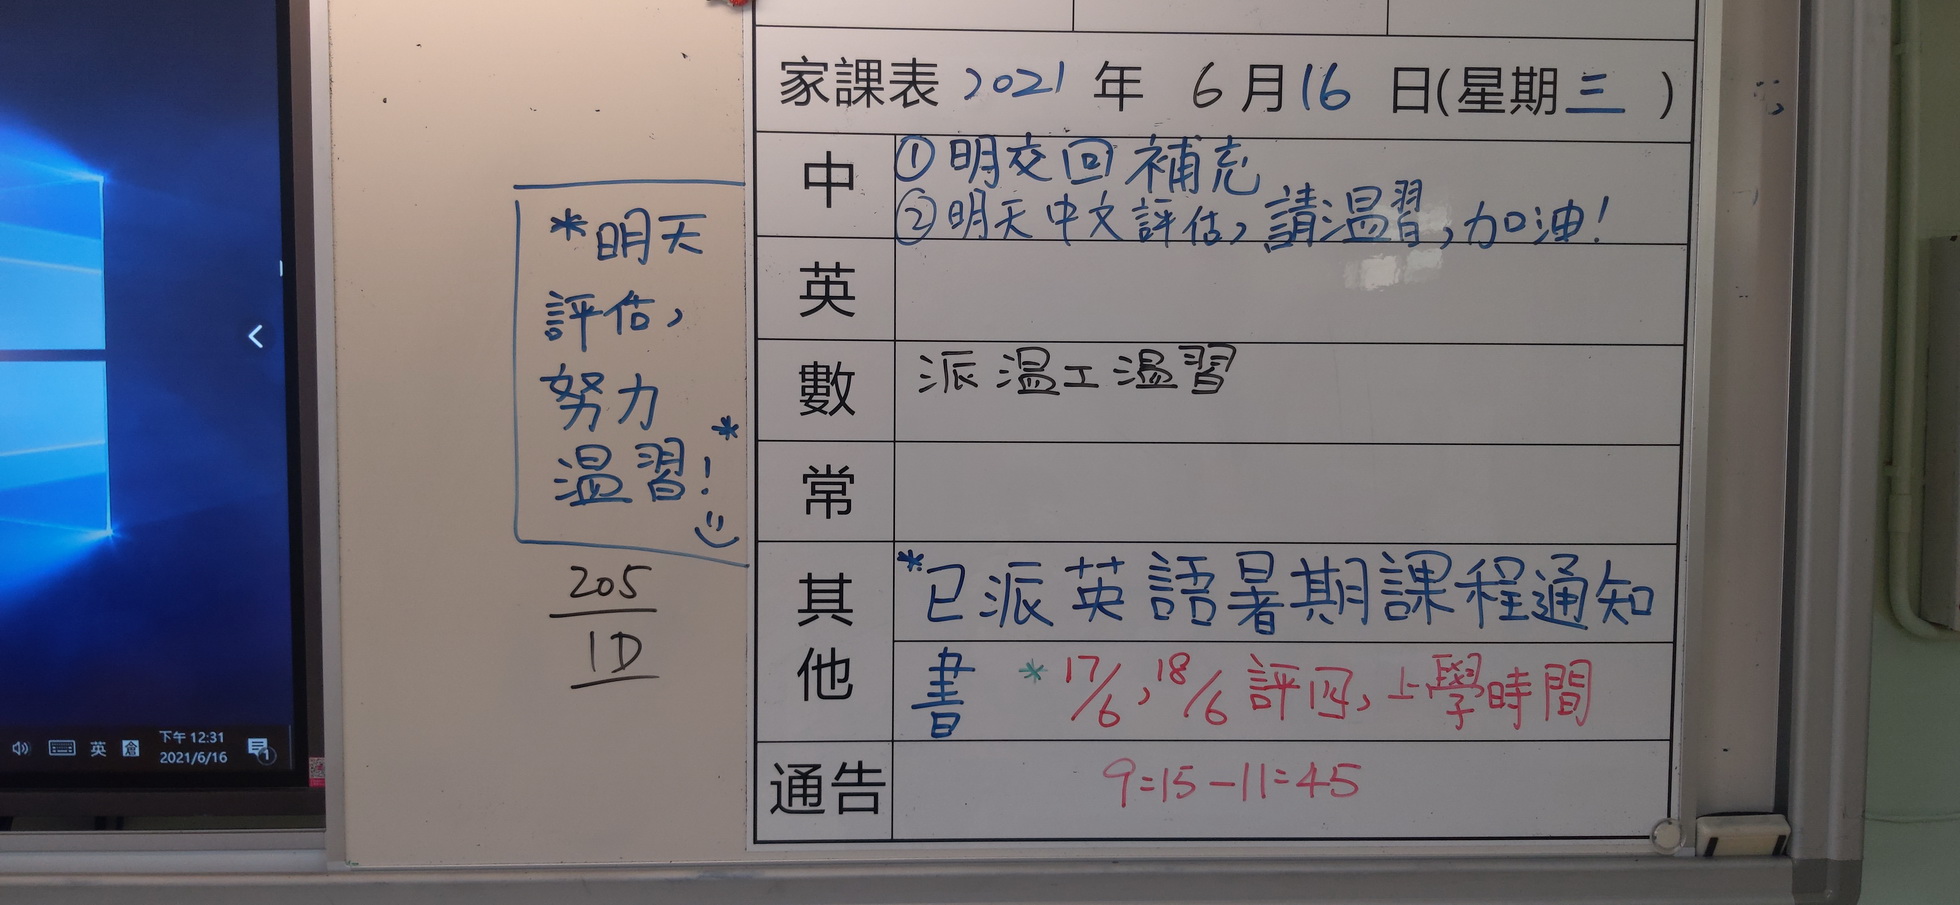 家課表 2021 年 6月16 日(星期三 )
中
①明交回補充
②明天中文評估,請溫習,加油!
英
數
派溫工溫習
常
其他
*已派英語暑期課程通知
書 * 17/6,18/6 評四,上學時間
通告
9:15-11:45
*明天
評估,
努力
溫習! *
205
1D
英 倉
下午 12:31
2021/6/16
1